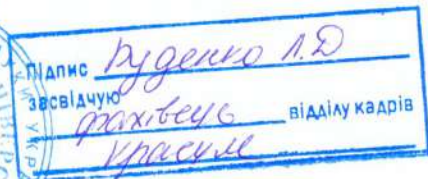 Підпис Руденко Л.Д
засвідчую
фахівець відділу кадрів